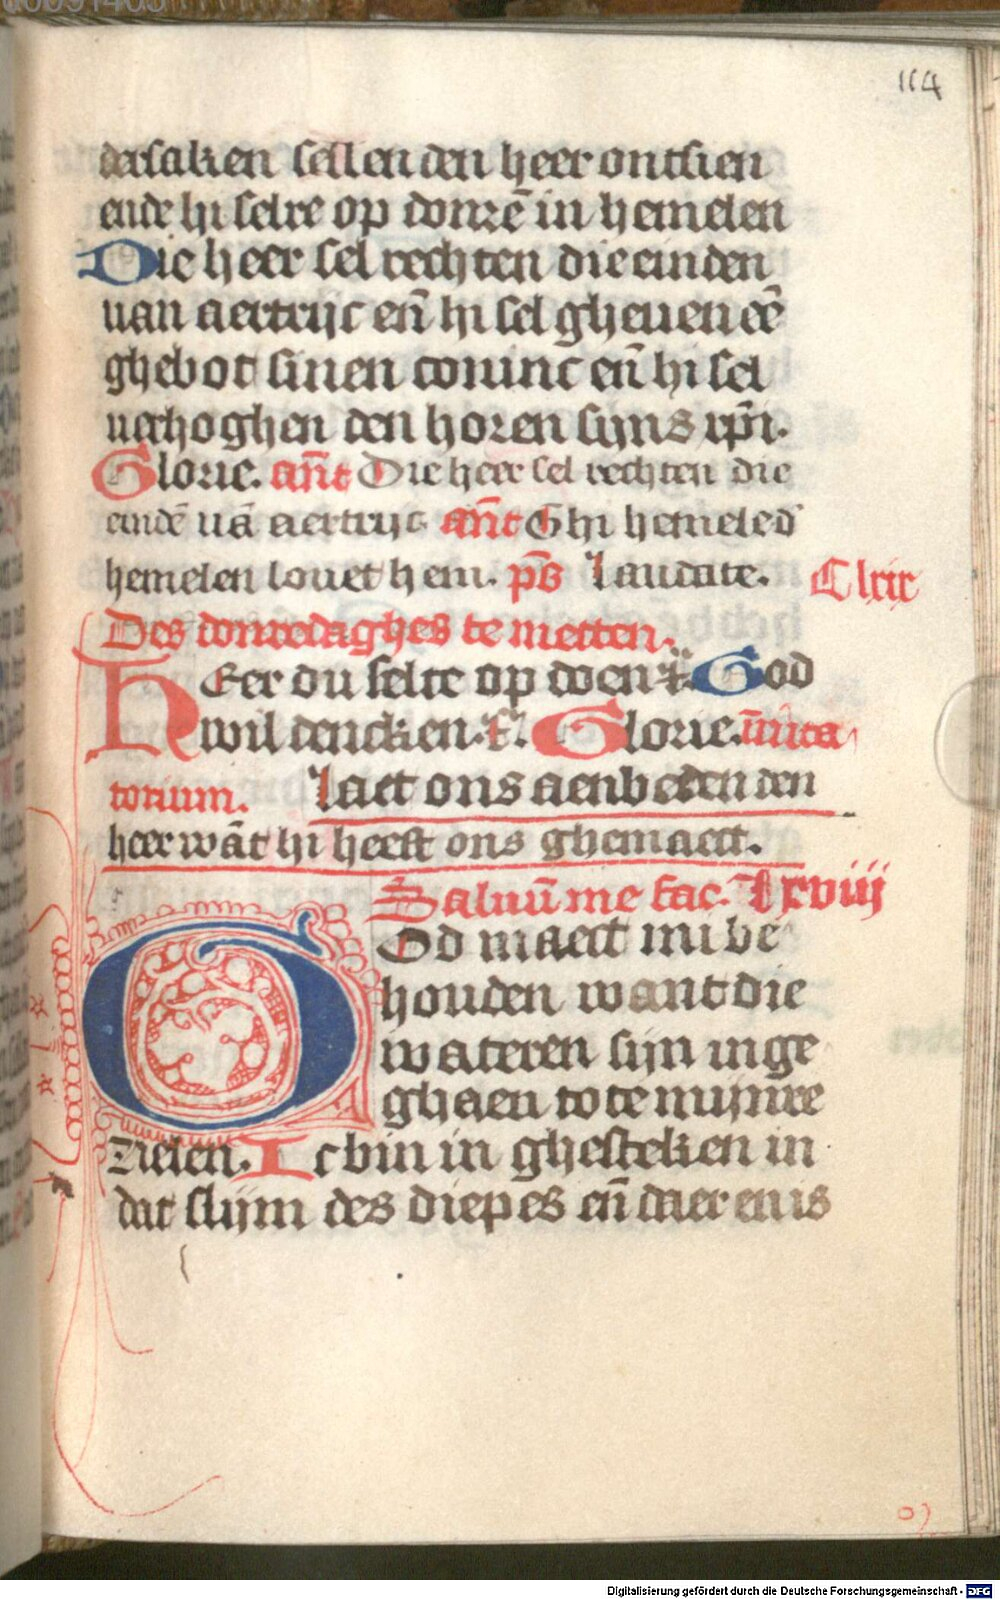 114
dersaken sellen den heer ontsien
ende hi selre op donrē in hemelen
Die heer sel rechten die einden
uan aertrijc en̄ hi sel gheuen eē
ghebot sinen coninc en̄ hi sel
uerhoghen den horen sijns xp̄i.
Glorie. an̄t Die heer sel rechten die
eindē uā aertrijc an̄t Ghi hemele d'
hemelen louet hem. ps̄ Laudate. Clxix
Des donredaghes te metten.
HEer du selte op doen God
wil dencken. Glorie. inuita
torium. Laet ons aenbeden den
heer wāt hi heeft ons ghemaect.
Saluū me fac. Lxviij
GOd maect mi be
houden want die
wateren sijn in ge
ghaen tote mijnre
zielen. Ic bin in ghesteken in
dat slijm des diepes en̄ daer en is
Digitalisierung gefördert durch die Deutsche Forschungsgemeinschaft - DFG